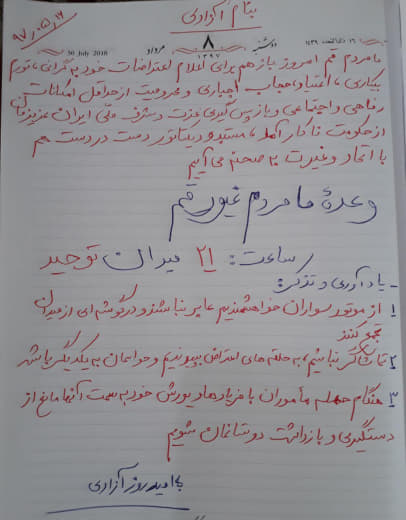 بنام آزادی
۹۷،۵،۱۶
30 July 2018
مرداد
۸
۱۳۹۷
دوشنبه
ما مردم قم امروز باز هم برای اعلام اعتراضات خود به گرانی، تورم
بیکاری، اعتیاد، حجاب اجباری و محرومیت از حداقل امکانات
رفاهی و اجتماعی و باز پس گیری عزت و شرف ملی ایران عزیزمان
از حکومت ناکارآمد، مستبد و دیکتاتور دست در دست هم
با اتحاد و غیرت به صحنه می آییم
وعدۀ ما مردم غیور قم
ساعت: ۲۱ میدان توحید
- یادآوری و تذکر:
۱ از موتور سواران خواهشمندیم عابر نباشند و در گوشه ای از میدان
تجمع کنند
۲ تماشاگر نباشیم، به حلقه های اعتراض بپیوندیم و حواسمان به یکدیگر باشد
۳ هنگام حمله مأموران با فریادها و یورش خود به سمت آنها مانع از
دستگیری و بازداشت دوستانمان شویم
به امید روز آزادی